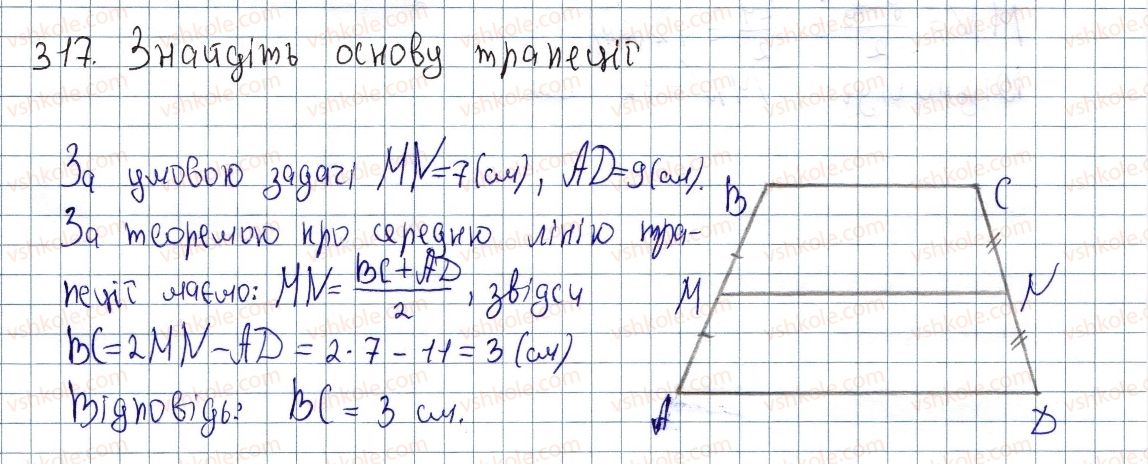 317. Знайдіть основу трапеції
За умовою задачі MN=7(см), AD=9(см).
За теоремою про середню лінію тра-
пеції маємо: MN=(BC+AD)/2, звідси
BC=2MN-AD=2·7-11=3(см)
Відповідь: BC=3 см.
B C
M N
A D
vshkole.com